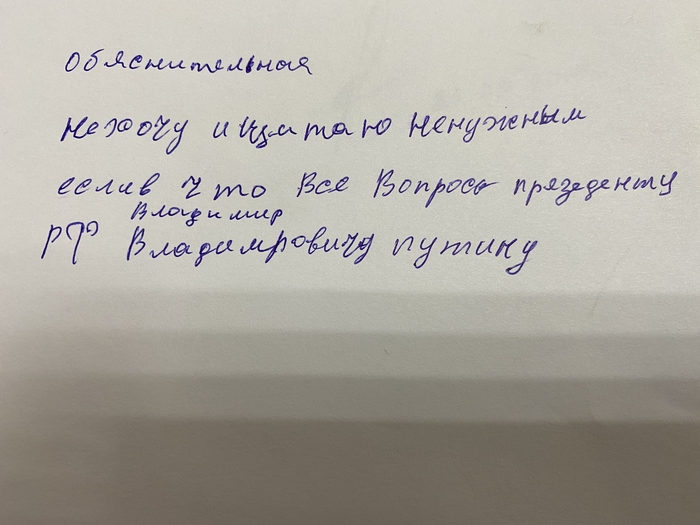 обяснительная
нехочу ищитаю ненужным
еслив что все вопросы презеденту
Владимир
РФ Владимровичу путину